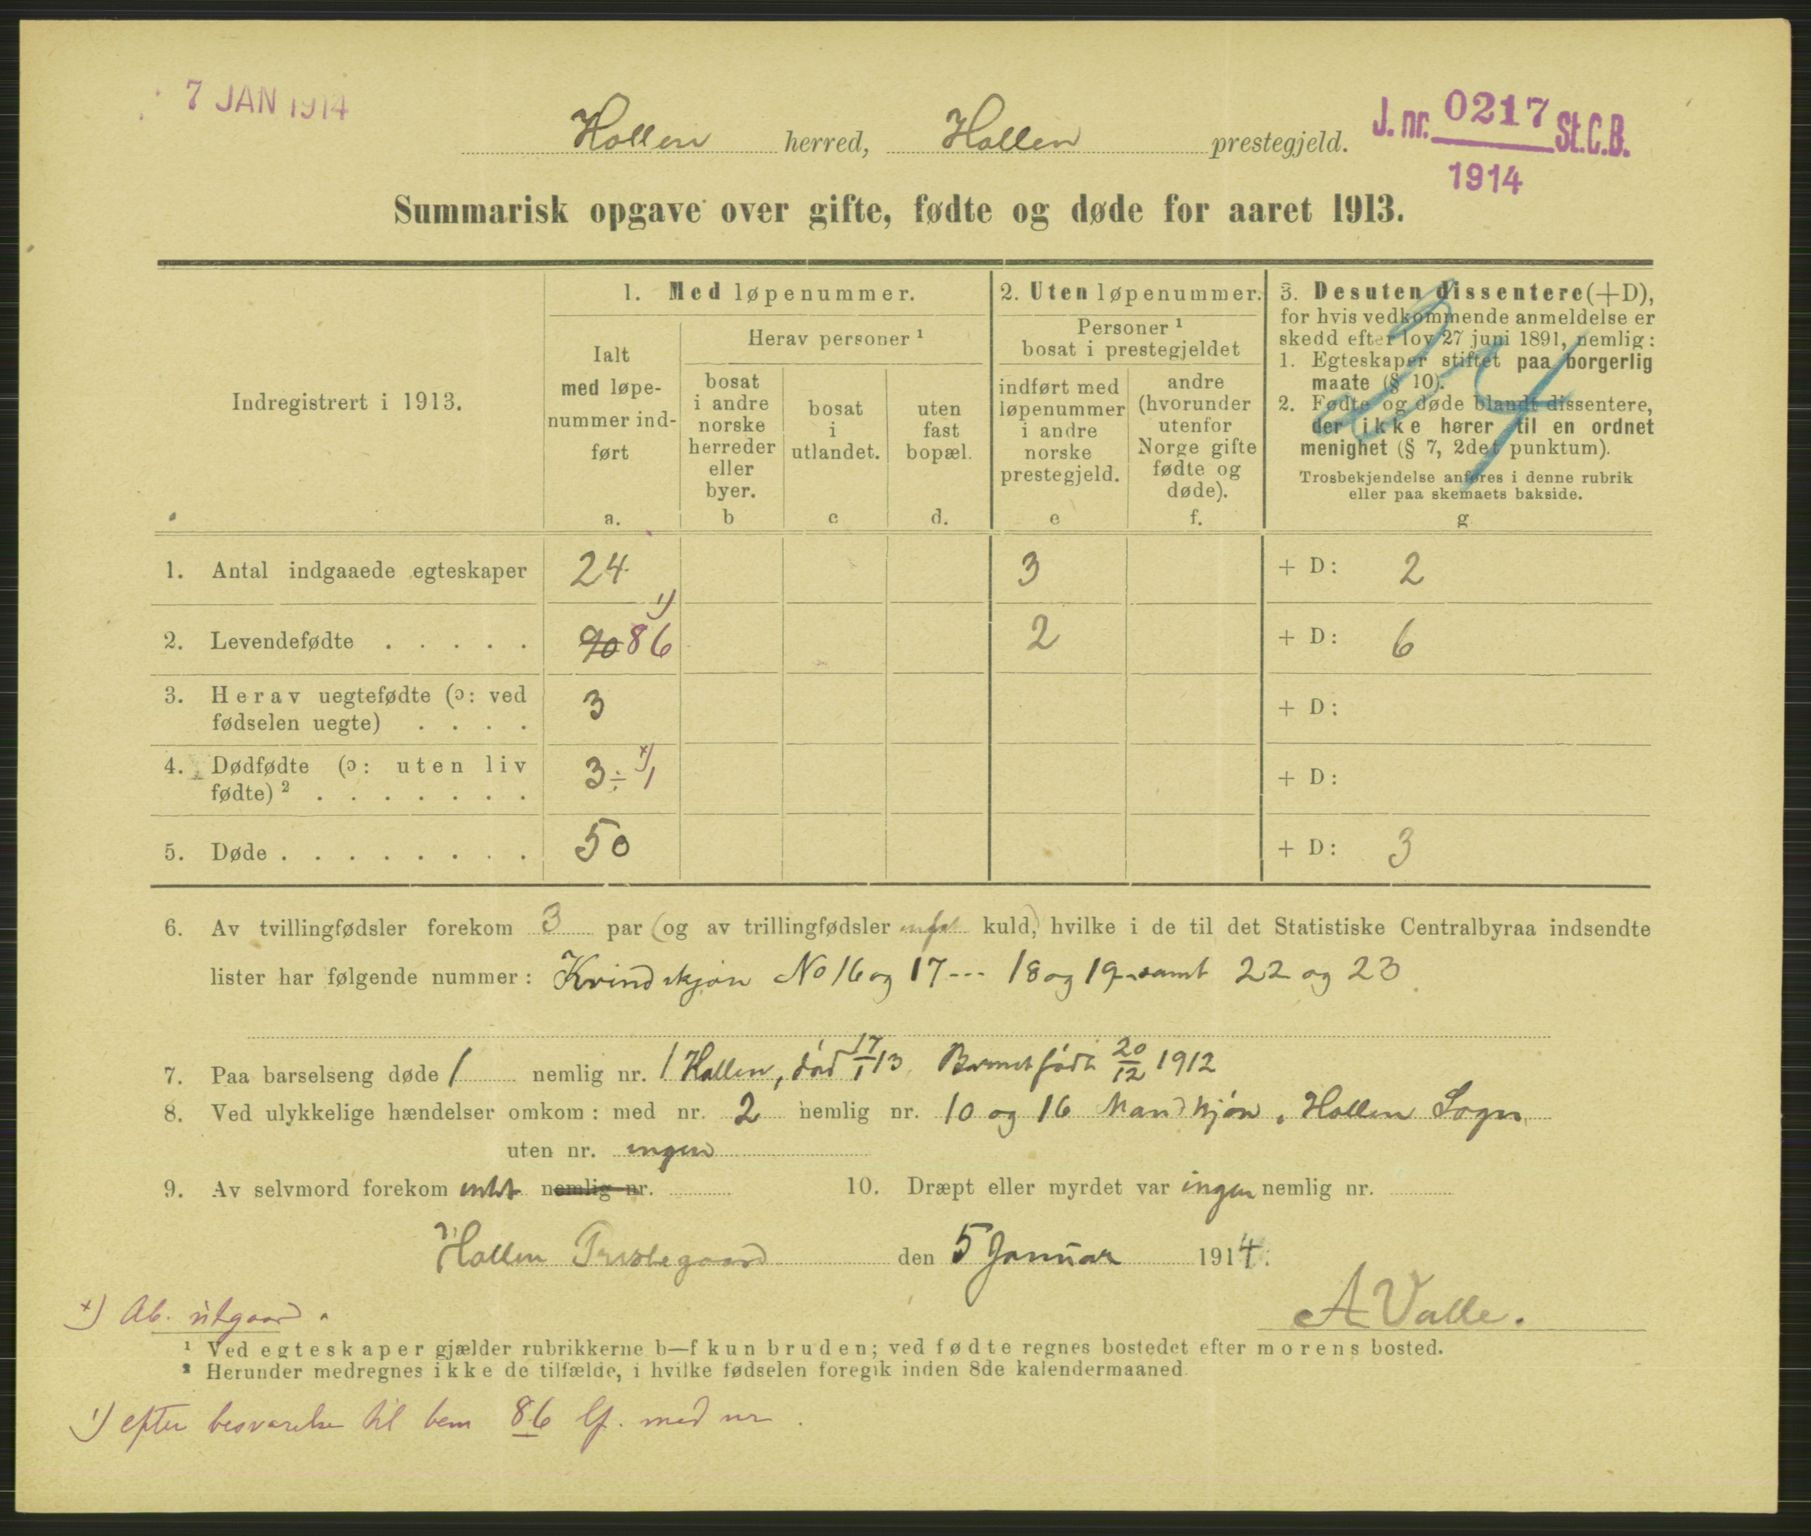 7 JAN 1914
Hollen herred, Hollen prestegjeld.
J. nr. 0217 St. C. B.
1914
Summarisk opgave over gifte, fødte og døde for aaret 1913.
Indregistrert i 1913.
1. Med løpenummer.
Ialt med løpe-
nummer ind-
ført
a.
Herav personer ¹
bosat
i andre
norske
herreder
eller
byer.
b
bosat
i
utlandet.
c
uten
fast
bopæl.
d.
2. Uten løpenummer.
Personer ¹
bosat i prestegjeldet
indført med
løpenummer
i andre
norske
prestegjeld.
e
andre
(hvorunder
utenfor
Norge gifte
fødte og
døde).
f.
3. Desuten dissentere (+D),
for hvis vedkommende anmeldelse er
skedd efter lov 27 juni 1891, nemlig:
1. Egteskaper stiftet paa borgerlig
maate (§ 10).
2. Fødte og døde blandt dissentere,
der ikke hører til en ordnet
menighet (§ 7, 2det punktum).
Trosbekjendelse anføres i denne rubrik
eller paa skemaets bakside.
g
1. Antal indgaaede egteskaper 24 3 + D: 2
2. Levendefødte . . . . . 90 86 ¹) 2 + D: 6
3. Herav uegtefødte (ɔ: ved
fødselen uegte) . . . . 3 + D:
4. Dødfødte (ɔ: uten liv
fødte) ² . . . . . . . 3 ÷ 1 ˣ) + D:
5. Døde . . . . . . . . . 50 + D: 3
6. Av tvillingfødsler forekom 3 par (og av trillingfødsler kuld,) hvilke i de til det Statistiske Centralbyraa indsendte
lister har følgende nummer: Kvindekjøn No 16 og 17 --- 18 og 19 - samt 22 og 23
7. Paa barselseng døde 1 nemlig nr. 1 Hollen, død 17/1 13. Barnet født 20/12 1912
8. Ved ulykkelige hændelser omkom: med nr. 2 nemlig nr. 10 og 16 Mandkjøn, Hollen Sogn
uten nr. ingen
9. Av selvmord forekom intet nemlig nr. 10. Dræpt eller myrdet var ingen nemlig nr.
Hollen Prestegaard den 5 Januar 1914.
A Valle.
ˣ) Ab. utgaar.
¹ Ved egteskaper gjælder rubrikkerne b—f kun bruden; ved fødte regnes bostedet efter morens bosted.
² Herunder medregnes ikke de tilfælde, i hvilke fødselen foregik inden 8de kalendermaaned.
¹) efter besvarelse til bem 86 lf. med nr.